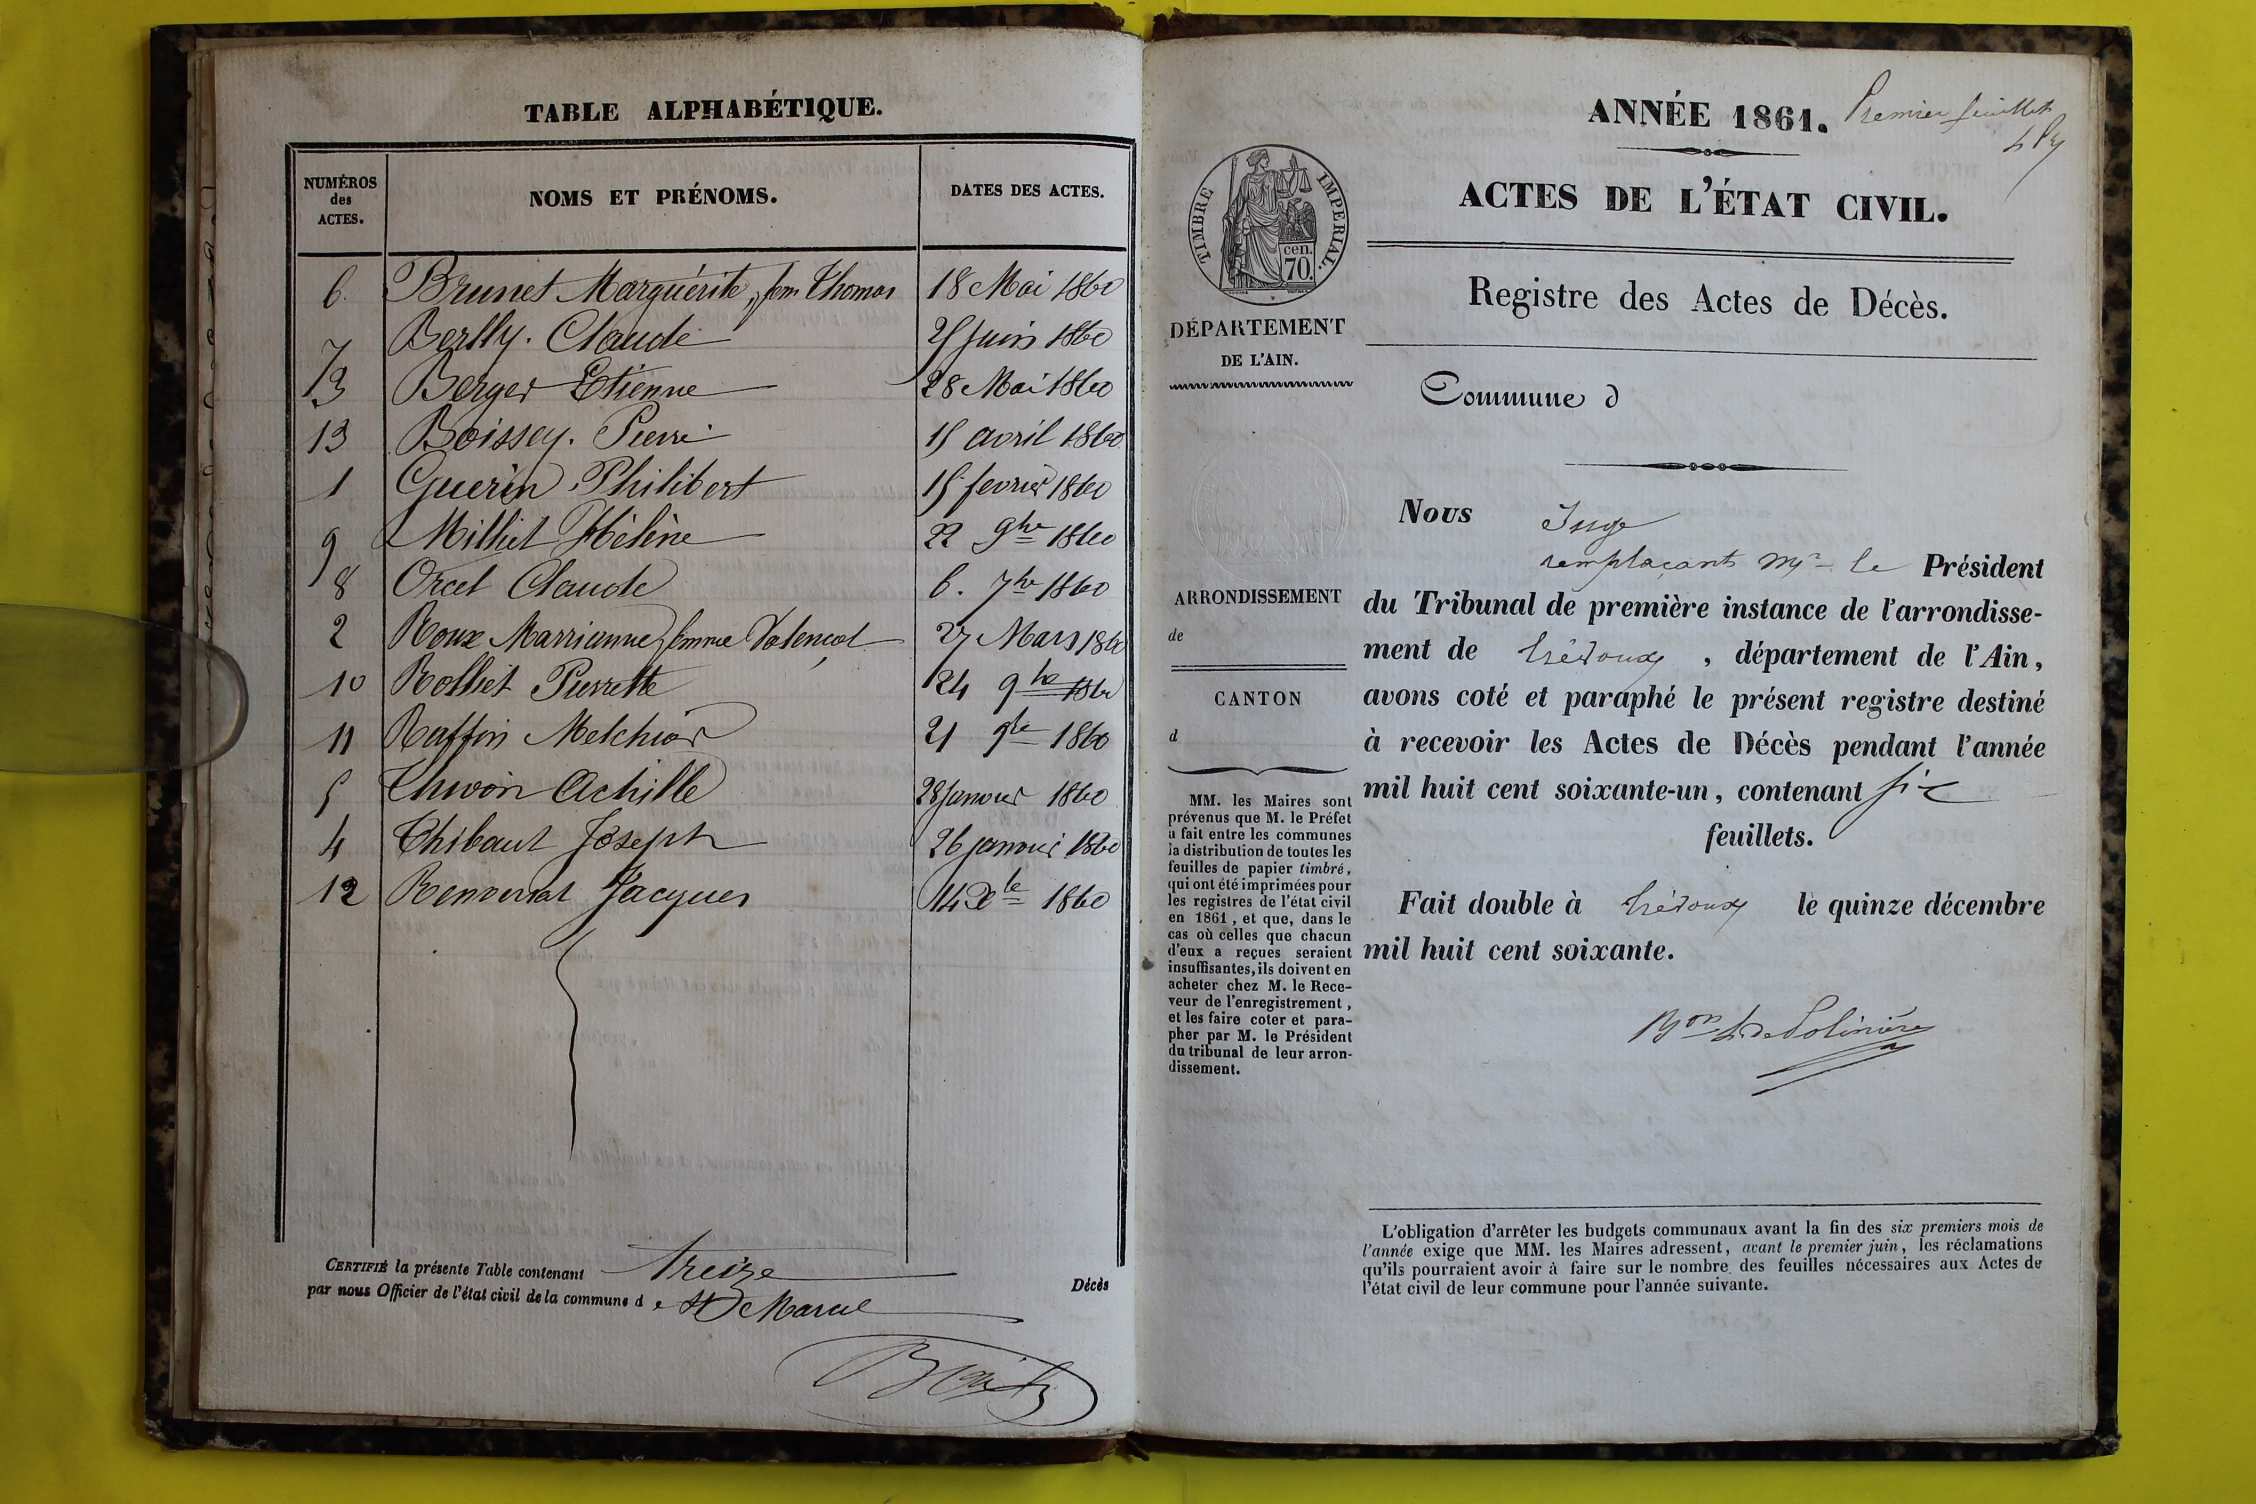 TABLE ALPHABÉTIQUE.
NUMÉROS
des
ACTES.
NOMS ET PRÉNOMS.
DATES DES ACTES.
6. Brunet Marguérite, fem Thomas 18 Mai 1860
7 Berlly. Claude 25 Juin 1860
3 Berger Etienne 28 Mai 1860
13 Boissey. Pierre 15 avril 1860
1 Guerin Philibert 15 fevrier 1860
9 Milliet Hélène 22 9bre 1860
8 Orcel Claude 6. 7bre 1860
2 Roux Marrianne, femme Valençot 27 Mars 1860
10 Rolliet Pierrette 24 9bre 1860
11 Raffin Melchior 21 9bre 1860
5 Achille 28 Janvier 1860
4 Thibaut Joseph 26 janvier 1860
12 Jacques 14 Xbre 1860
CERTIFIÉ la présente Table contenant treize Décès
par nous Officier de l'état civil de la commune d e St Marcel
ANNÉE 1861.
Premier feuillet
ACTES DE L'ÉTAT CIVIL.
TIMBRE IMPERIAL.
cen.
70.
Registre des Actes de Décès.
DÉPARTEMENT
DE L'AIN.
Commune d
Nous Juge
remplaçant Mr le Président
du Tribunal de première instance de l'arrondisse-
ment de Trévoux, département de l'Ain,
avons coté et paraphé le présent registre destiné
à recevoir les Actes de Décès pendant l'année
mil huit cent soixante-un, contenant six
feuillets.
Fait double à Trévoux le quinze décembre
mil huit cent soixante.
Bon de Polinière
ARRONDISSEMENT
de
CANTON
d
MM. les Maires sont
prévenus que M. le Préfet
a fait entre les communes
la distribution de toutes les
feuilles de papier timbré,
qui ont été imprimées pour
les registres de l'état civil
en 1861, et que, dans le
cas où celles que chacun
d'eux a reçues seraient
insuffisantes, ils doivent en
acheter chez M. le Rece-
veur de l'enregistrement,
et les faire coter et para-
pher par M. le Président
du tribunal de leur arron-
dissement.
L'obligation d'arrêter les budgets communaux avant la fin des six premiers mois de
l'année exige que MM. les Maires adressent, avant le premier juin, les réclamations
qu'ils pourraient avoir à faire sur le nombre des feuilles nécessaires aux Actes de
l'état civil de leur commune pour l'année suivante.